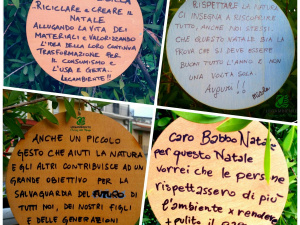 RICICLARE E CREARE IL
NATALE
ALLUNGANDO LA VITA DEI
MATERIALI E VALORIZZANDO
L'IDEA DELLA LORO CONTINUA
TRASFORMAZIONE PER IL
IL CONSUMISMO E
L'USA E GETTA
CECAMENTE!!
RISPETTARE LA NATURA
CI INSEGNA A RISCOPRIRE
TUTTO, ANCHE NOI STESSI.
CHE QUESTO NATALE SIA LA
PROVA CHE SI DEVE ESSERE
BUONI TUTTO L'ANNO E NON
UNA VOLTA SOLA
Auguri!!
ANCHE UN PICCOLO
GESTO CHE AIUTI LA NATURA
E GLI ALTRI CONTRIBUISCE AD UN
GRANDE OBIETTIVO PER LA
SALVAGUARDIA DEL FUTURO DI
TUTTI NOI, DEI NOSTRI FIGLI
E DELLE GENERAZIONI
Caro Babbo Natale
per questo Natale
vorrei che le persone
rispettassero di più
l'ambiente x rendere
+ pulito il